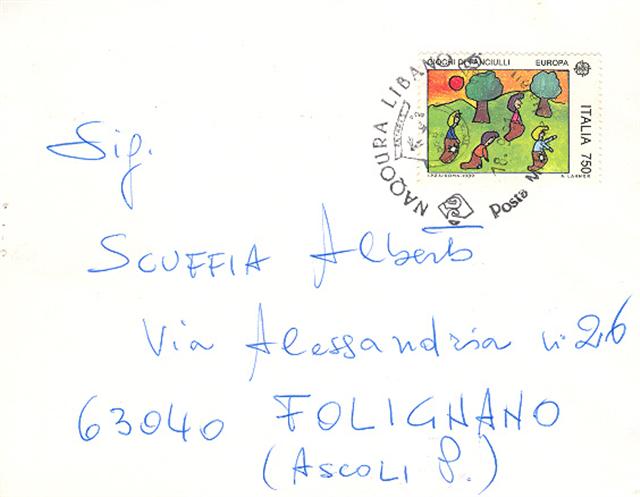 GIOCHI DI FANCIULLI EUROPA
ITALIA 750
NAQOURA LIBANO
Posta
Sig.
SCUFFIA Alberto
Via Alessandria n. 26
63040 FOLIGNANO
(ASCOLI P.)